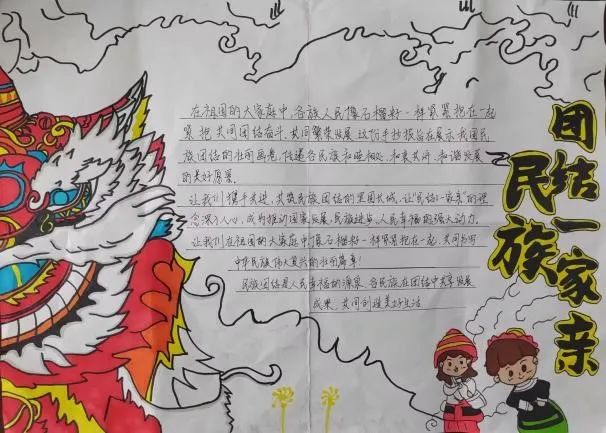 民族
团结一家亲
在祖国的大家庭中,各族人民像石榴籽一样紧紧抱在一起
紧把共同团结奋斗、共同繁荣发展,这份手抄报旨在展示我国民
族团结的壮丽画卷,传递各民族和睦相处、和衷共济、和谐发展
的美好愿景。
让我们携手共进,共筑民族团结的坚固长城,让"民族一家亲"的理
念深入人心,成为推动国家发展、民族进步、人民幸福的强大动力。
让我们在祖国的大家庭中像石榴籽一样紧紧抱在一起,共同书写
中华民族伟大复兴的壮丽篇章!
民族团结是人民幸福的源泉,各民族在团结中共享发展
成果,共同创造美好生活